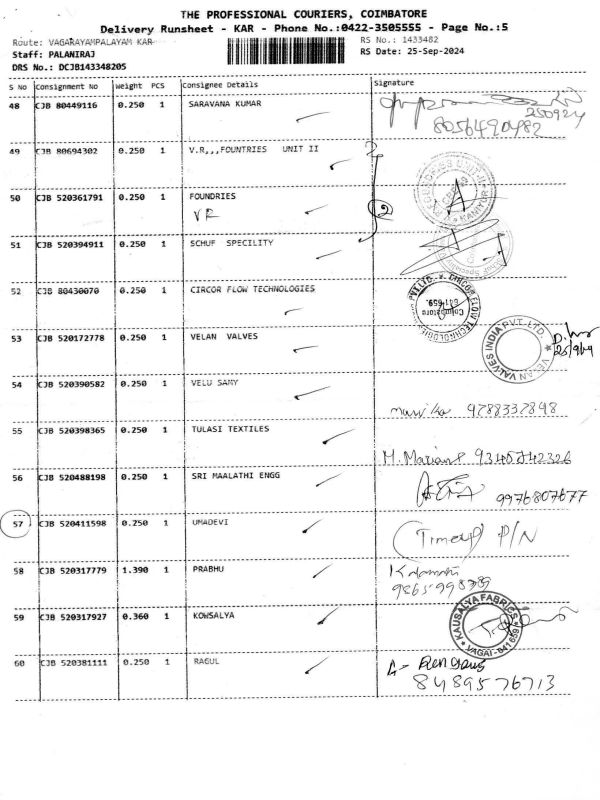 THE PROFESSIONAL COURIERS, COIMBATORE
Delivery Runsheet - KAR - Phone No.:0422-3505555 - Page No.:5
Route: VAGARAYAMPALAYAM KAR RS No.: 1433482
Staff: PALANIRAJ RS Date: 25-Sep-2024
DRS No.: DCJB143348205
S No Consignment No Weight PCS Consignee Details Signature
48 CJB 80449116 0.250 1 SARAVANA KUMAR 250924
8056490482
49 CJB 80694302 0.250 1 V.R,,,FOUNTRIES UNIT II
50 CJB 520361791 0.250 1 FOUNDRIES
VR 2
51 CJB 520394911 0.250 1 SCHUF SPECILITY
52 CJB 80430070 0.250 1 CIRCOR FLOW TECHNOLOGIES
Coimbatore 641 659.
53 CJB 520172778 0.250 1 VELAN VALVES VELAN VALVES INDIA PVT. LTD.
25/9/24
54 CJB 520390582 0.250 1 VELU SAMY
9788337898
55 CJB 520398365 0.250 1 TULASI TEXTILES
56 CJB 520488198 0.250 1 SRI MAALATHI ENGG
9976807677
57 CJB 520411598 0.250 1 UMADEVI
P/N
58 CJB 520317779 1.390 1 PRABHU
59 CJB 520317927 0.360 1 KOWSALYA KAUSALYA FABRICS
VAGAI-641 659
60 CJB 520381111 0.250 1 RAGUL
8489576713